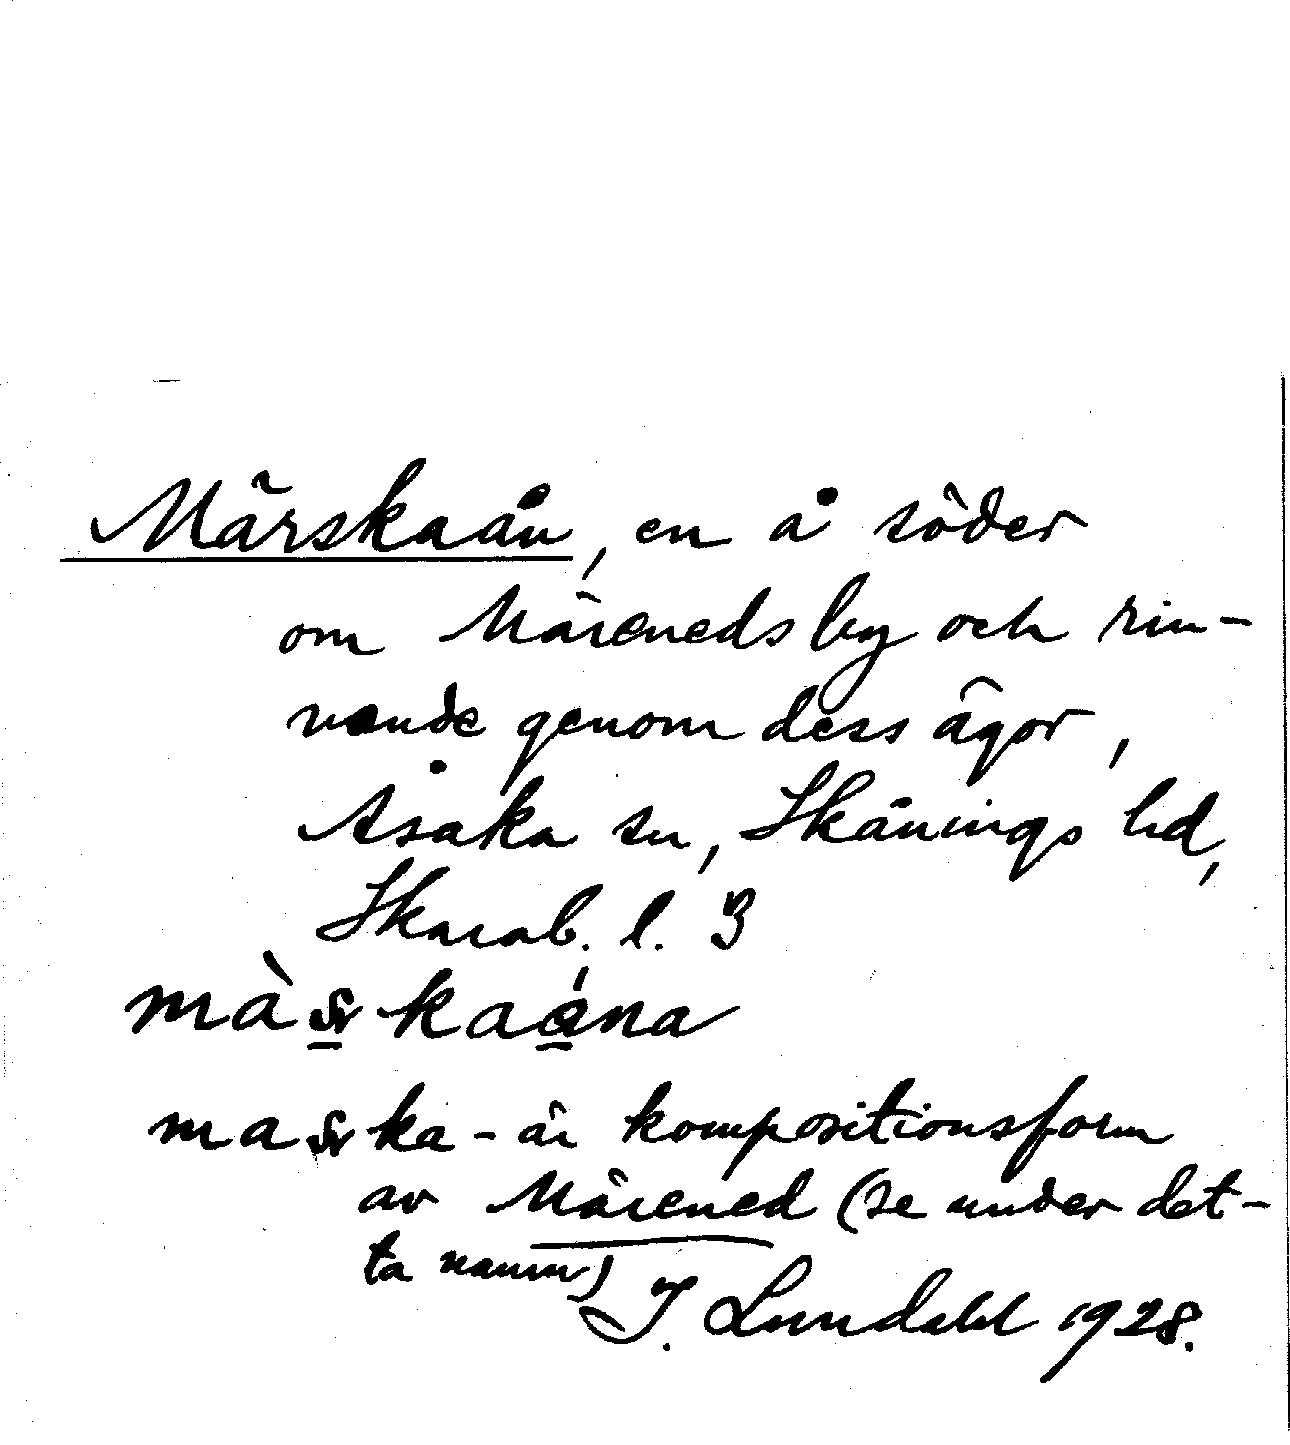 Märskaån, en å söder
om Märeneds by och rin-
nande genom dess ägor,
Åsaka sn, Skånings hd,
Skarab. l. 3
maska- är kompositionsform
av Märened (se under det-
ta namn)
I. Lundahl 1928.